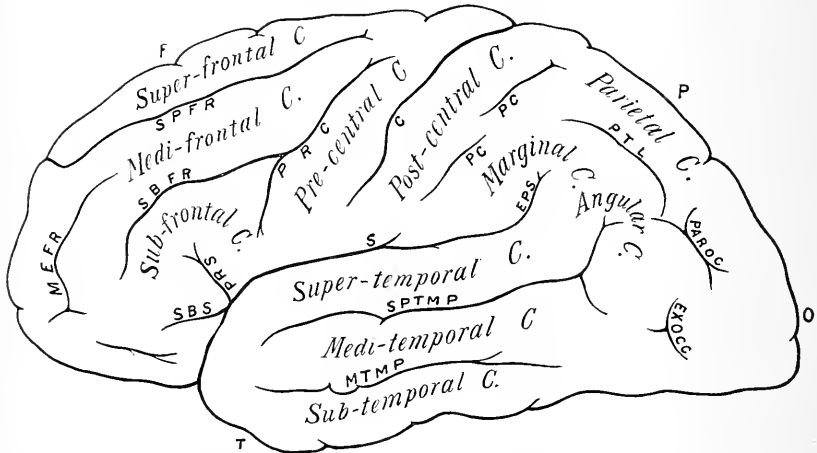 F
Super-frontal C
SPFR
Medi-frontal C.
SBFR
Sub-frontal C.
MEFR
PRS
SBS
PRC
Pre-central C
C
Post-central C.
PC
PC
Parietal C.
P
PTL
Marginal C.
EPS
Angular C.
PAROC
EXOCC
O
S
Super-temporal C.
SPTMP
Medi-temporal C
MTMP
Sub-temporal C.
T